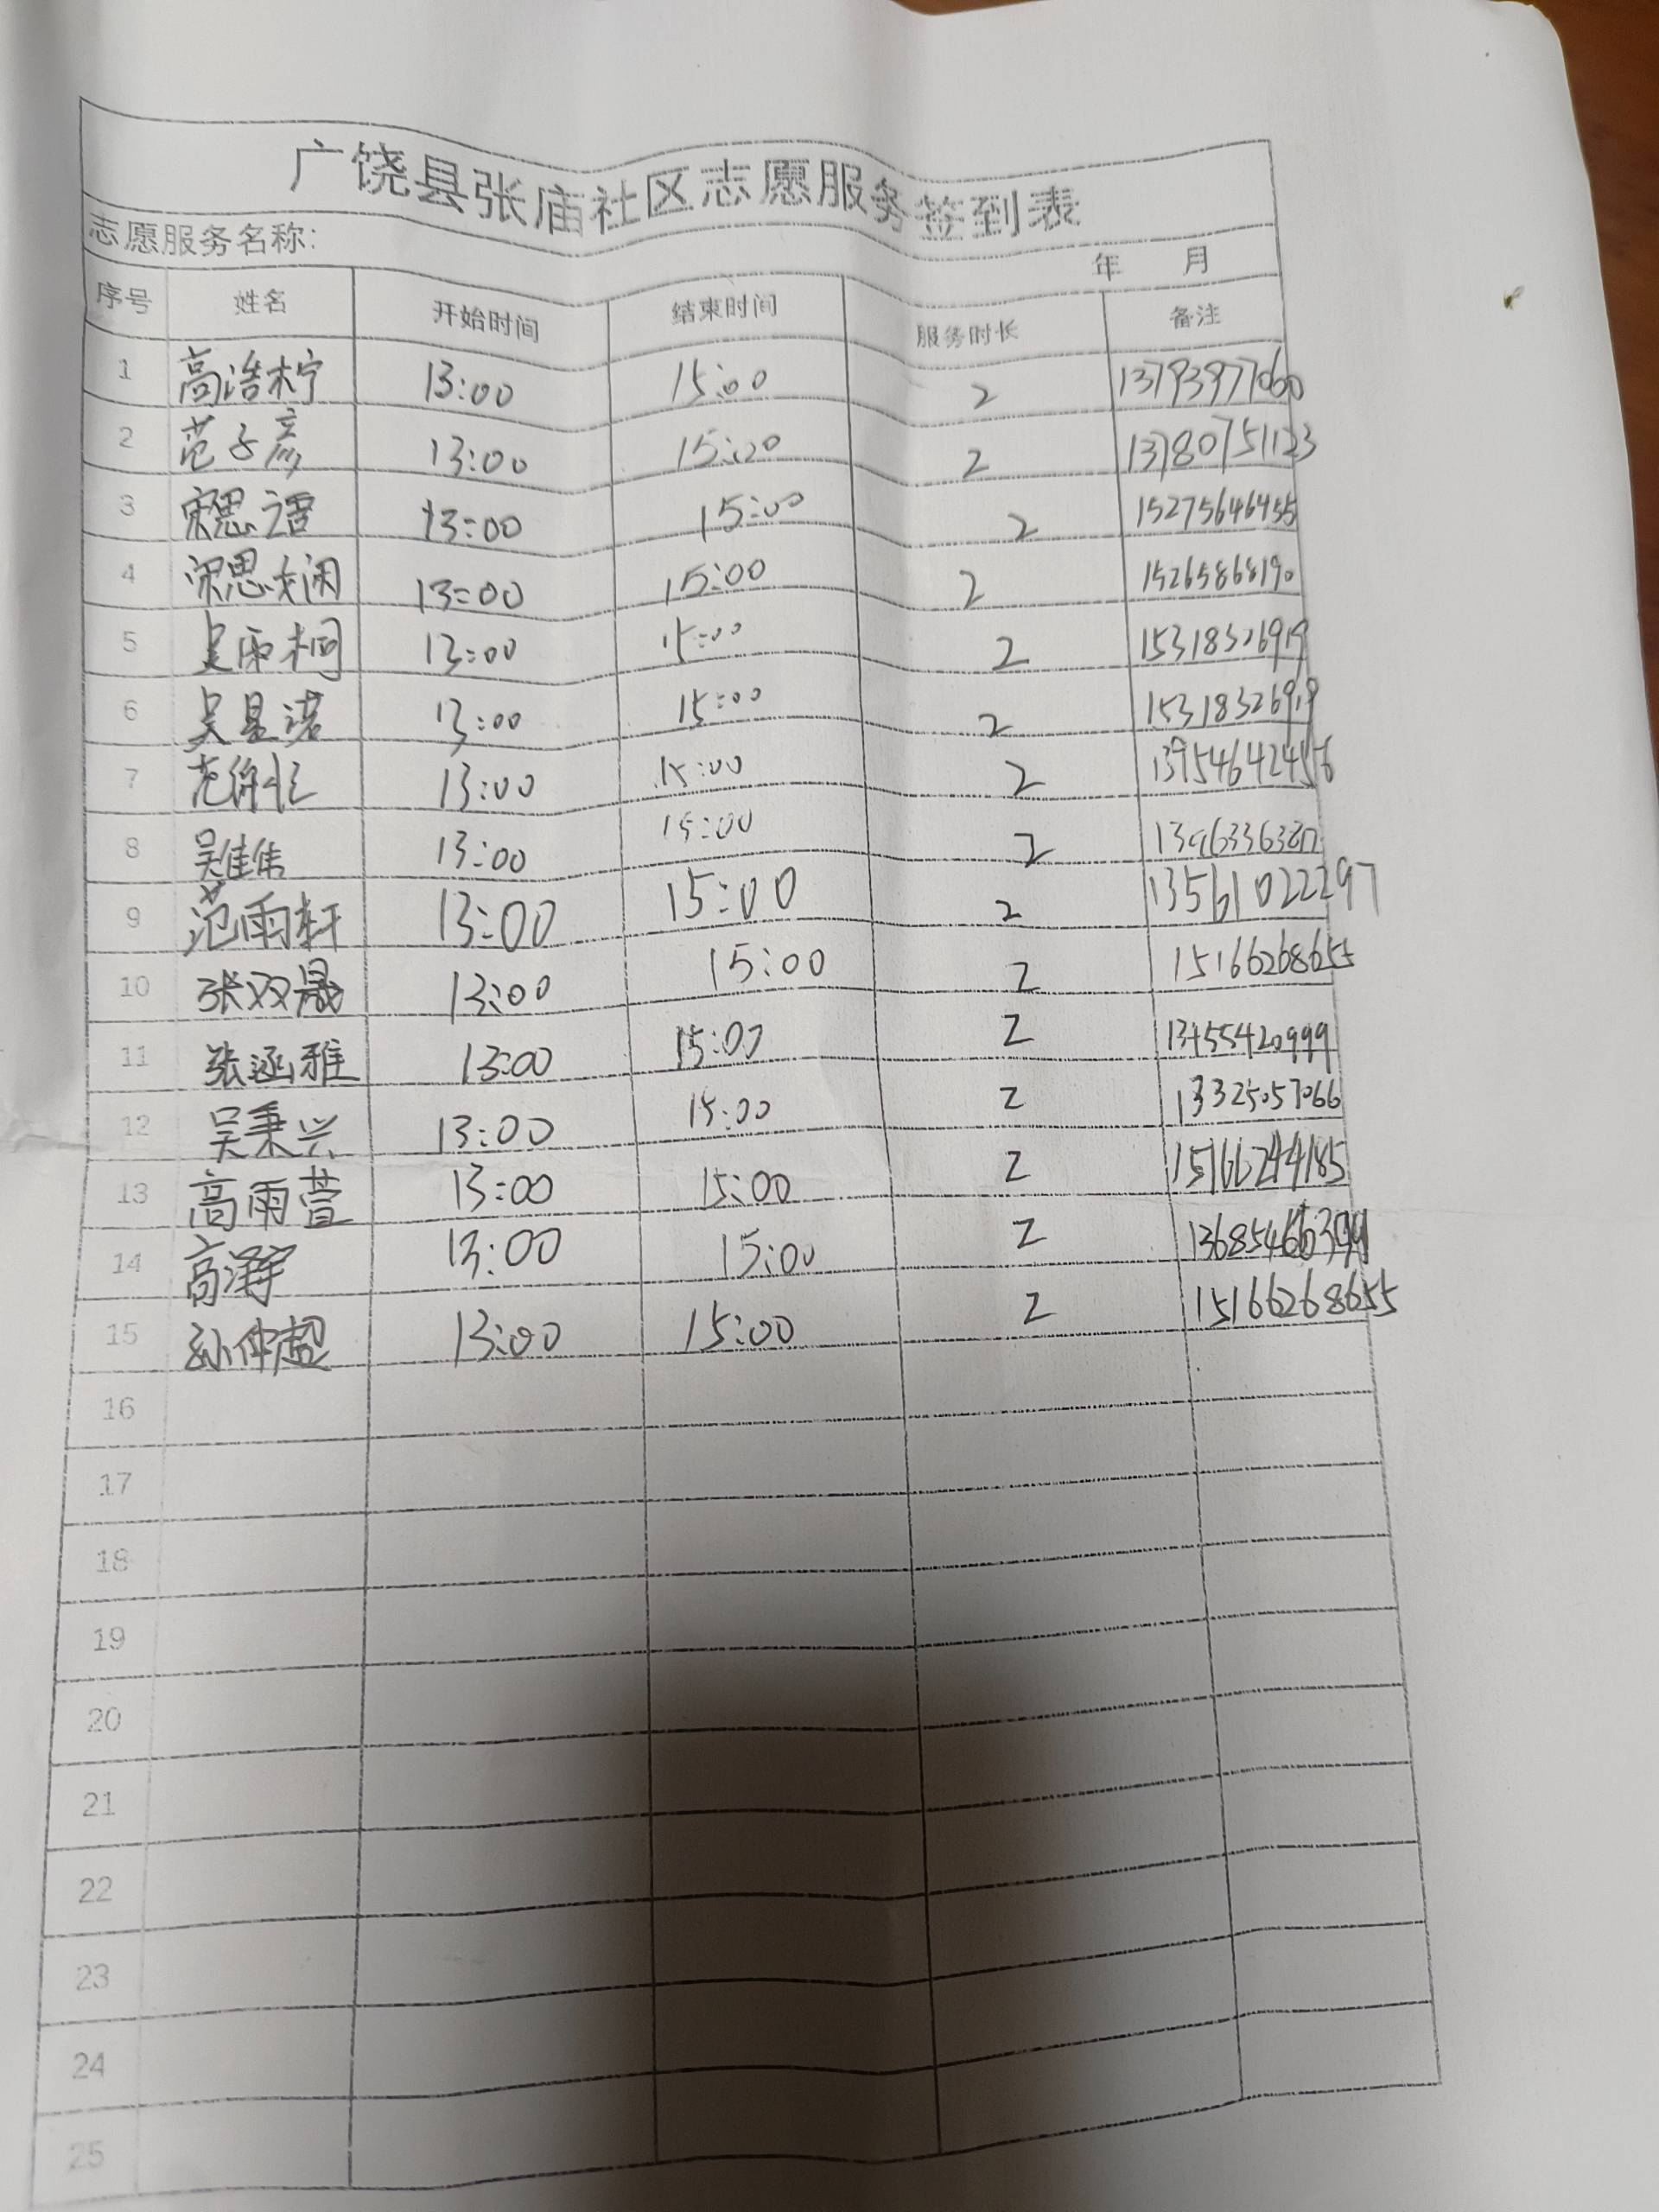 广饶县张庙社区志愿服务签到表
志愿服务名称: 年 月
序号 姓名 开始时间 结束时间 服务时长 备注
1 高浩柠 13:00 15:00 2 13793977060
2 范子彦 13:00 15:00 2 13780751123
3 宋思语 13:00 15:00 2 15275646455
4 宋思娴 13:00 15:00 2 15265868190
5 吴雨桐 13:00 15:00 2 15318326919
6 吴昱诺 13:00 15:00 2 15318326919
7 13:00 15:00 2 13954642456
8 吴佳伟 13:00 15:00 2
9 范雨轩 13:00 15:00 2 13561022297
10 张双晟 13:00 15:00 2 15166268655
11 张涵雅 13:00 15:00 2 13455420999
12 吴秉兴 13:00 15:00 2 13325057066
13 高雨萱 13:00 15:00 2 15166244185
14 高泽宇 13:00 15:00 2
15 孙仲超 13:00 15:00 2 15166268655
16
17
18
19
20
21
22
23
24
25